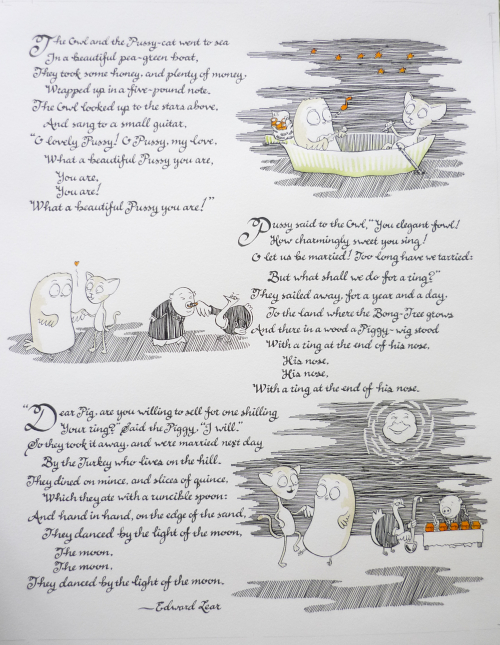 The Owl and the Pussy-cat went to sea
In a beautiful pea-green boat,
They took some honey, and plenty of money,
Wrapped up in a five-pound note.
The Owl looked up to the stars above,
And sang to a small guitar,
"O lovely Pussy! O Pussy, my love,
What a beautiful Pussy you are,
You are,
You are!
What a beautiful Pussy you are!"
Pussy said to the Owl, "You elegant fowl!
How charmingly sweet you sing!
O let us be married! Too long have we tarried:
But what shall we do for a ring?"
They sailed away, for a year and a day,
To the land where the Bong-Tree grows
And there in a wood a Piggy-wig stood
With a ring at the end of his nose,
His nose,
His nose,
With a ring at the end of his nose.
"Dear Pig, are you willing to sell for one shilling
Your ring?" Said the Piggy, "I will."
So they took it away, and were married next day
By the Turkey who lives on the hill.
They dined on mince, and slices of quince,
Which they ate with a runcible spoon:
And hand in hand, on the edge of the sand,
They danced by the light of the moon,
The moon,
The moon,
They danced by the light of the moon.
—Edward Lear